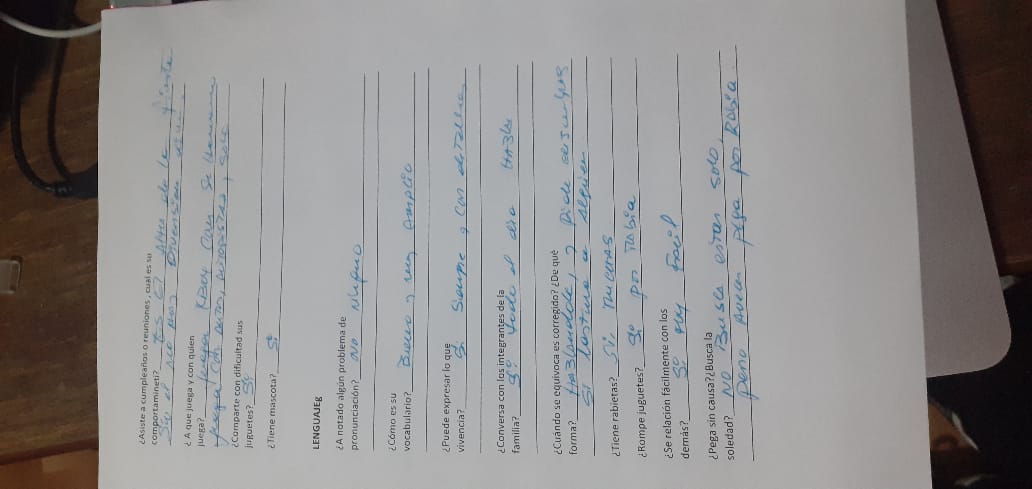 ¿Asiste a cumpleaños o reuniones , cual es su
comportamineti? es el Alma de la fiesta
Diversion
¿ A que juega y con quien
juega? juega XBOX con su hermano
juega con autos, autopistas, solo
¿Comparte con dificultad sus
juguetes? Si
¿Tiene mascota? Si
LENGUAJEg
¿A notado algún problema de
pronunciación? No Ninguno
¿Cómo es su
vocabulario? Bueno y muy amplio
¿Puede expresar lo que
vivencia? Si Siempre y con detalles
¿Conversa con los integrantes de la
familia? Si todo el dia habla
¿Cuándo se equivoca es corregido? ¿De qué
forma? Hablandole, y pide disculpas
Si lastima a alguien
¿Tiene rabietas? Si, muchas
¿Rompe juguetes? Si por rabia
¿Se relación fácilmente con los
demás? Si muy facil
¿Pega sin causa?¿Busca la
soledad? No Busca estar solo,
pero pega por Rabia.